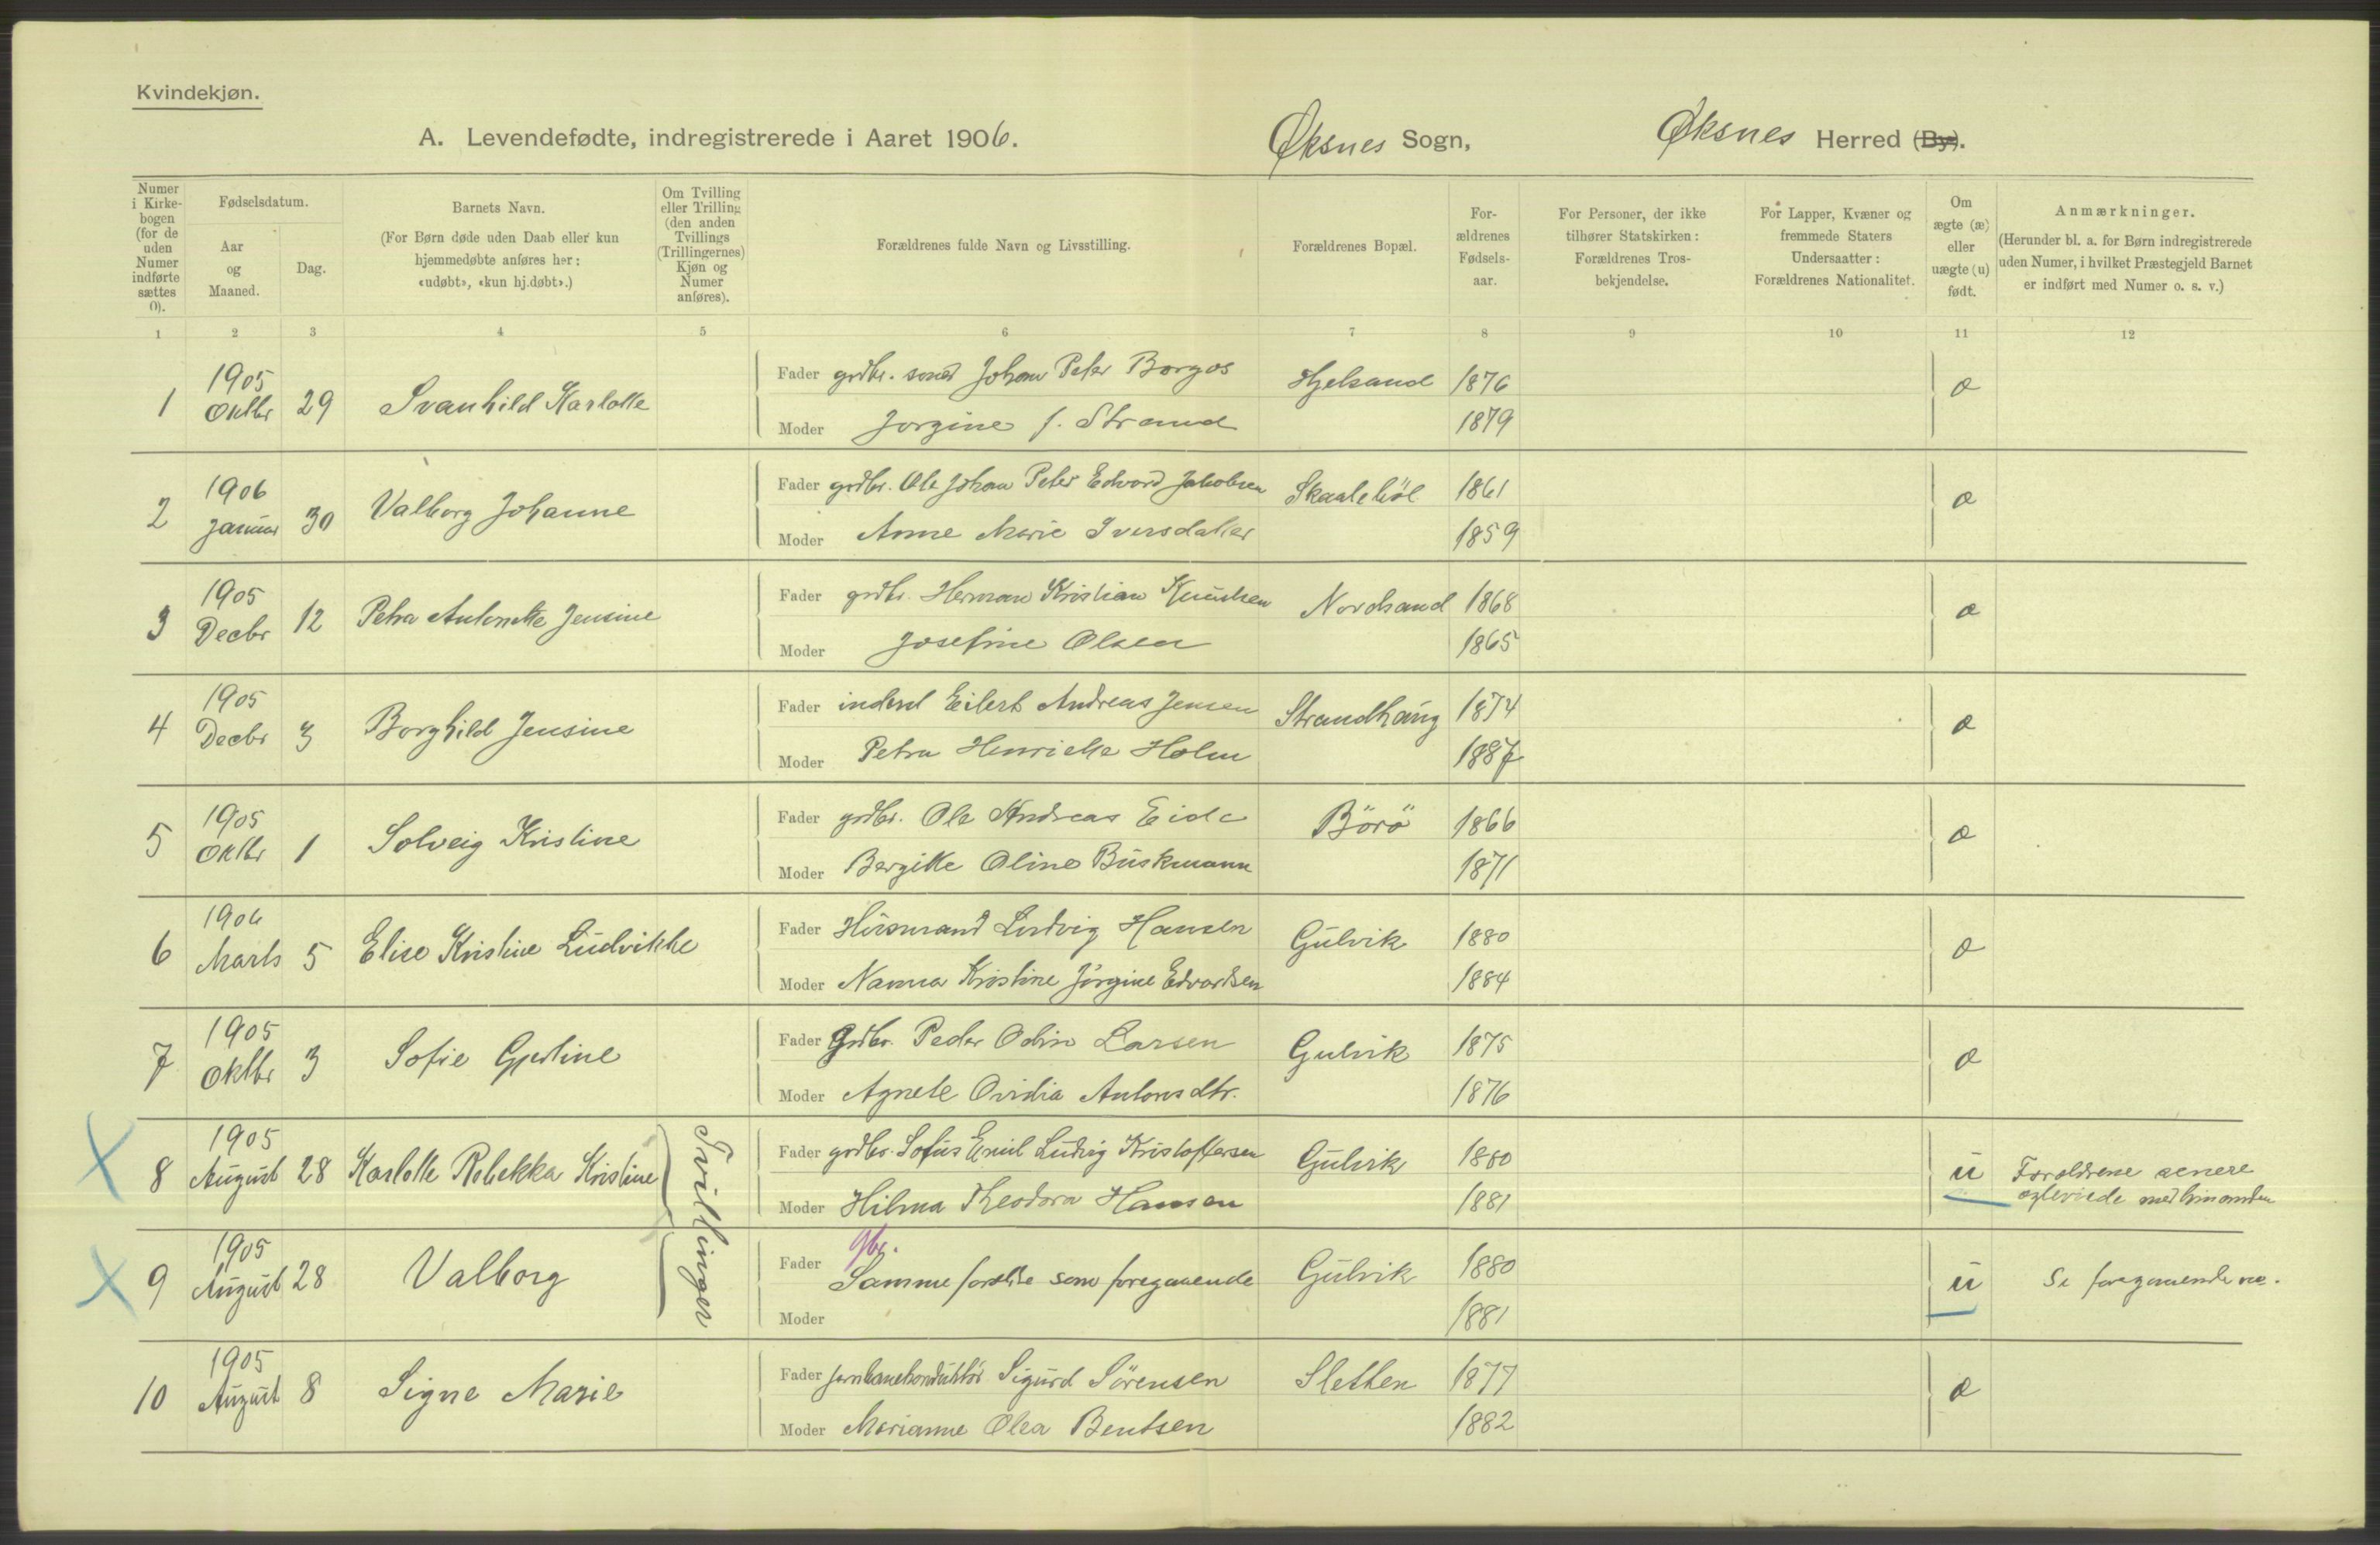 Kvindekjøn.
A. Levendefødte, indregistrerede i Aaret 1906. Øksnes Sogn, Øksnes Herred (By).
Numer i Kirkebogen (for de uden Numer indførte sættes 0).
Fødselsdatum.
Aar og Maaned.
Dag.
Barnets Navn.
(For Børn døde uden Daab eller kun hjemmedøbte anføres her: «udøbt», «kun hj.døbt».)
Om Tvilling eller Trilling (den anden Tvillings (Trillingernes) Kjøn og Numer anføres).
Forældrenes fulde Navn og Livsstilling.
Forældrenes Bopæl.
For-ældrenes Fødsels-aar.
For Personer, der ikke tilhører Statskirken: Forældrenes Tros-bekjendelse.
For Lapper, Kvæner og fremmede Staters Undersaatter: Forældrenes Nationalitet.
Om ægte (æ) eller uægte (u) født.
Anmærkninger.
(Herunder bl. a. for Børn indregistrerede uden Numer, i hvilket Præstegjeld Barnet er indført med Numer o. s. v.)
1 2 3 4 5 6 7 8 9 10 11 12
1 1905 Oktbr 29 Svanhild Karlotte Fader grdbr. Johan Peter Borgos 1876 æ
Moder Jorgine f. Strand 1879
2 1906 Januar 30 Valborg Johanne Fader grdbr. Ole Johan Peter Edvard Jakobsen 1861 æ
Moder Anne Marie Iversdatter 1859
3 1905 Decbr 12 Petra Antonette Jensine Fader grdbr. Herman Kristian Knudsen Nordsand 1868 æ
Moder Josefine Olsen 1865
4 1905 Decbr 3 Borghild Jensine Fader Eilert Andreas Jensen Strandhaug 1874 æ
Moder Petra Henrikke Holm 1887
5 1905 Oktbr 1 Solveig Kristine Fader grdbr. Ole Andreas Eide Börö 1866 æ
Moder Bergitte Oline Buskmann 1871
6 1906 Marts 5 Elise Kristine Ludvikke Fader Husmand Ludvig Hansen Gulvik 1880 æ
Moder Nanna Kristine Jörgine Edvardsen 1884
7 1905 Oktbr 3 Sofie Gjertine Fader Grdbr. Peder Odin Larsen Gulvik 1875 æ
Moder Agnete Ovidia Antonsdtr. 1876
8 1905 August 28 Karlotte Rebekka Kristine Tvillinger Fader grdbr. Sofus Emil Ludvig Kristoffersen Gulvik 1880 u Forældrene senere
Moder Hilma Theodora Hansen 1881 ægteviede med hinanden
9 1905 August 28 Valborg Fader gbr. Samme forældre som foregaaende Gulvik 1880 u Se foregaaende no.
Moder 1881
10 1905 August 8 Signe Marie Fader jernbanekonduktör Sigurd Sörensen Sletten 1877 æ
Moder Marianne Olea Bentsen 1882